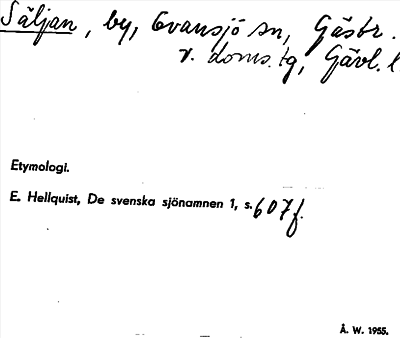 Säljan, by, Ovansjö sn, Gästr.
v. doms.tg, Gävl. l.
Etymologi.
E. Hellquist, De svenska sjönamnen 1, s. 607 f.
Å. W. 1955.